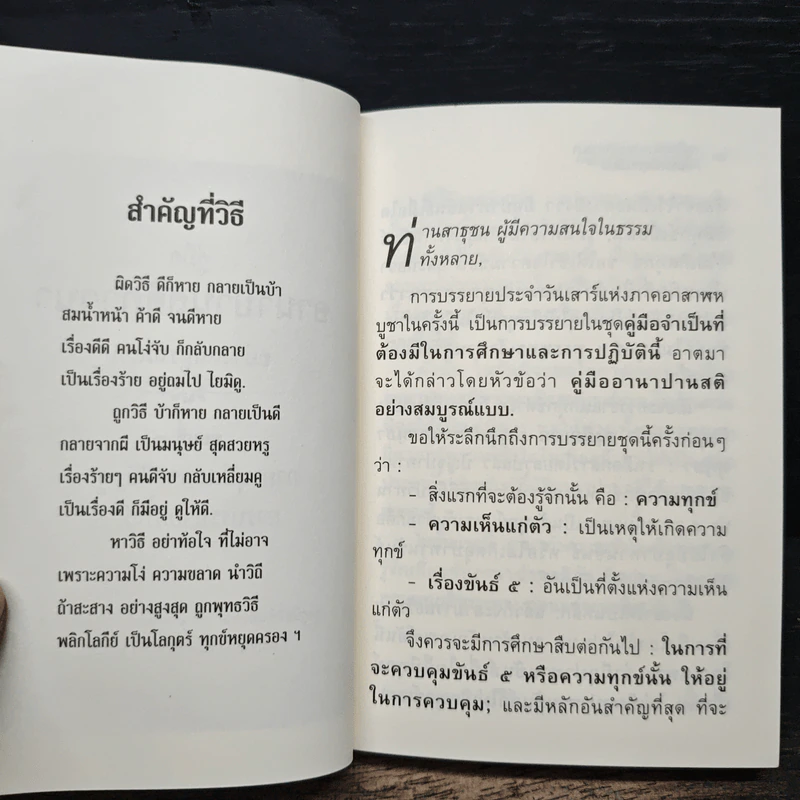 สำคัญที่วิธี
ผิดวิธี ดีก็หาย กลายเป็นบ้า
สมน้ำหน้า ค้าดี จนดีหาย
เรื่องดีดี คนโง่จับ ก็กลับกลาย
เป็นเรื่องร้าย อยู่ถมไป ไยมิดู.
ถูกวิธี บ้าก็หาย กลายเป็นดี
กลายจากผี เป็นมนุษย์ สุดสวยหรู
เรื่องร้ายๆ คนดีจับ กลับเหลี่ยมคู
เป็นเรื่องดี ก็มีอยู่ ดูให้ดี.
หาวิธี อย่าท้อใจ ที่ไม่อาจ
เพราะความโง่ ความขลาด นำวิถี
ถ้าสะสาง อย่างสูงสุด ถูกพุทธวิธี
พลิกโลกีย์ เป็นโลกุตร์ ทุกข์หยุดครอง ฯ
ท่านสาธุชน ผู้มีความสนใจในธรรม
ทั้งหลาย,
การบรรยายประจำวันเสาร์แห่งภาคอาสาฬห
บูชาในครั้งนี้ เป็นการบรรยายในชุดคู่มือจำเป็นที่
ต้องมีในการศึกษาและการปฏิบัตินี้ อาตมา
จะได้กล่าวโดยหัวข้อว่า คู่มืออานาปานสติ
อย่างสมบูรณ์แบบ.
ขอให้ระลึกนึกถึงการบรรยายชุดนี้ครั้งก่อนๆ
ว่า :
– สิ่งแรกที่จะต้องรู้จักนั้น คือ : ความทุกข์
– ความเห็นแก่ตัว : เป็นเหตุให้เกิดความ
ทุกข์
– เรื่องขันธ์ ๕ : อันเป็นที่ตั้งแห่งความเห็น
แก่ตัว
จึงควรจะมีการศึกษาสืบต่อกันไป : ในการที่
จะควบคุมขันธ์ ๕ หรือความทุกข์นั้น ให้อยู่
ในการควบคุม; และมีหลักอันสำคัญที่สุด ที่จะ